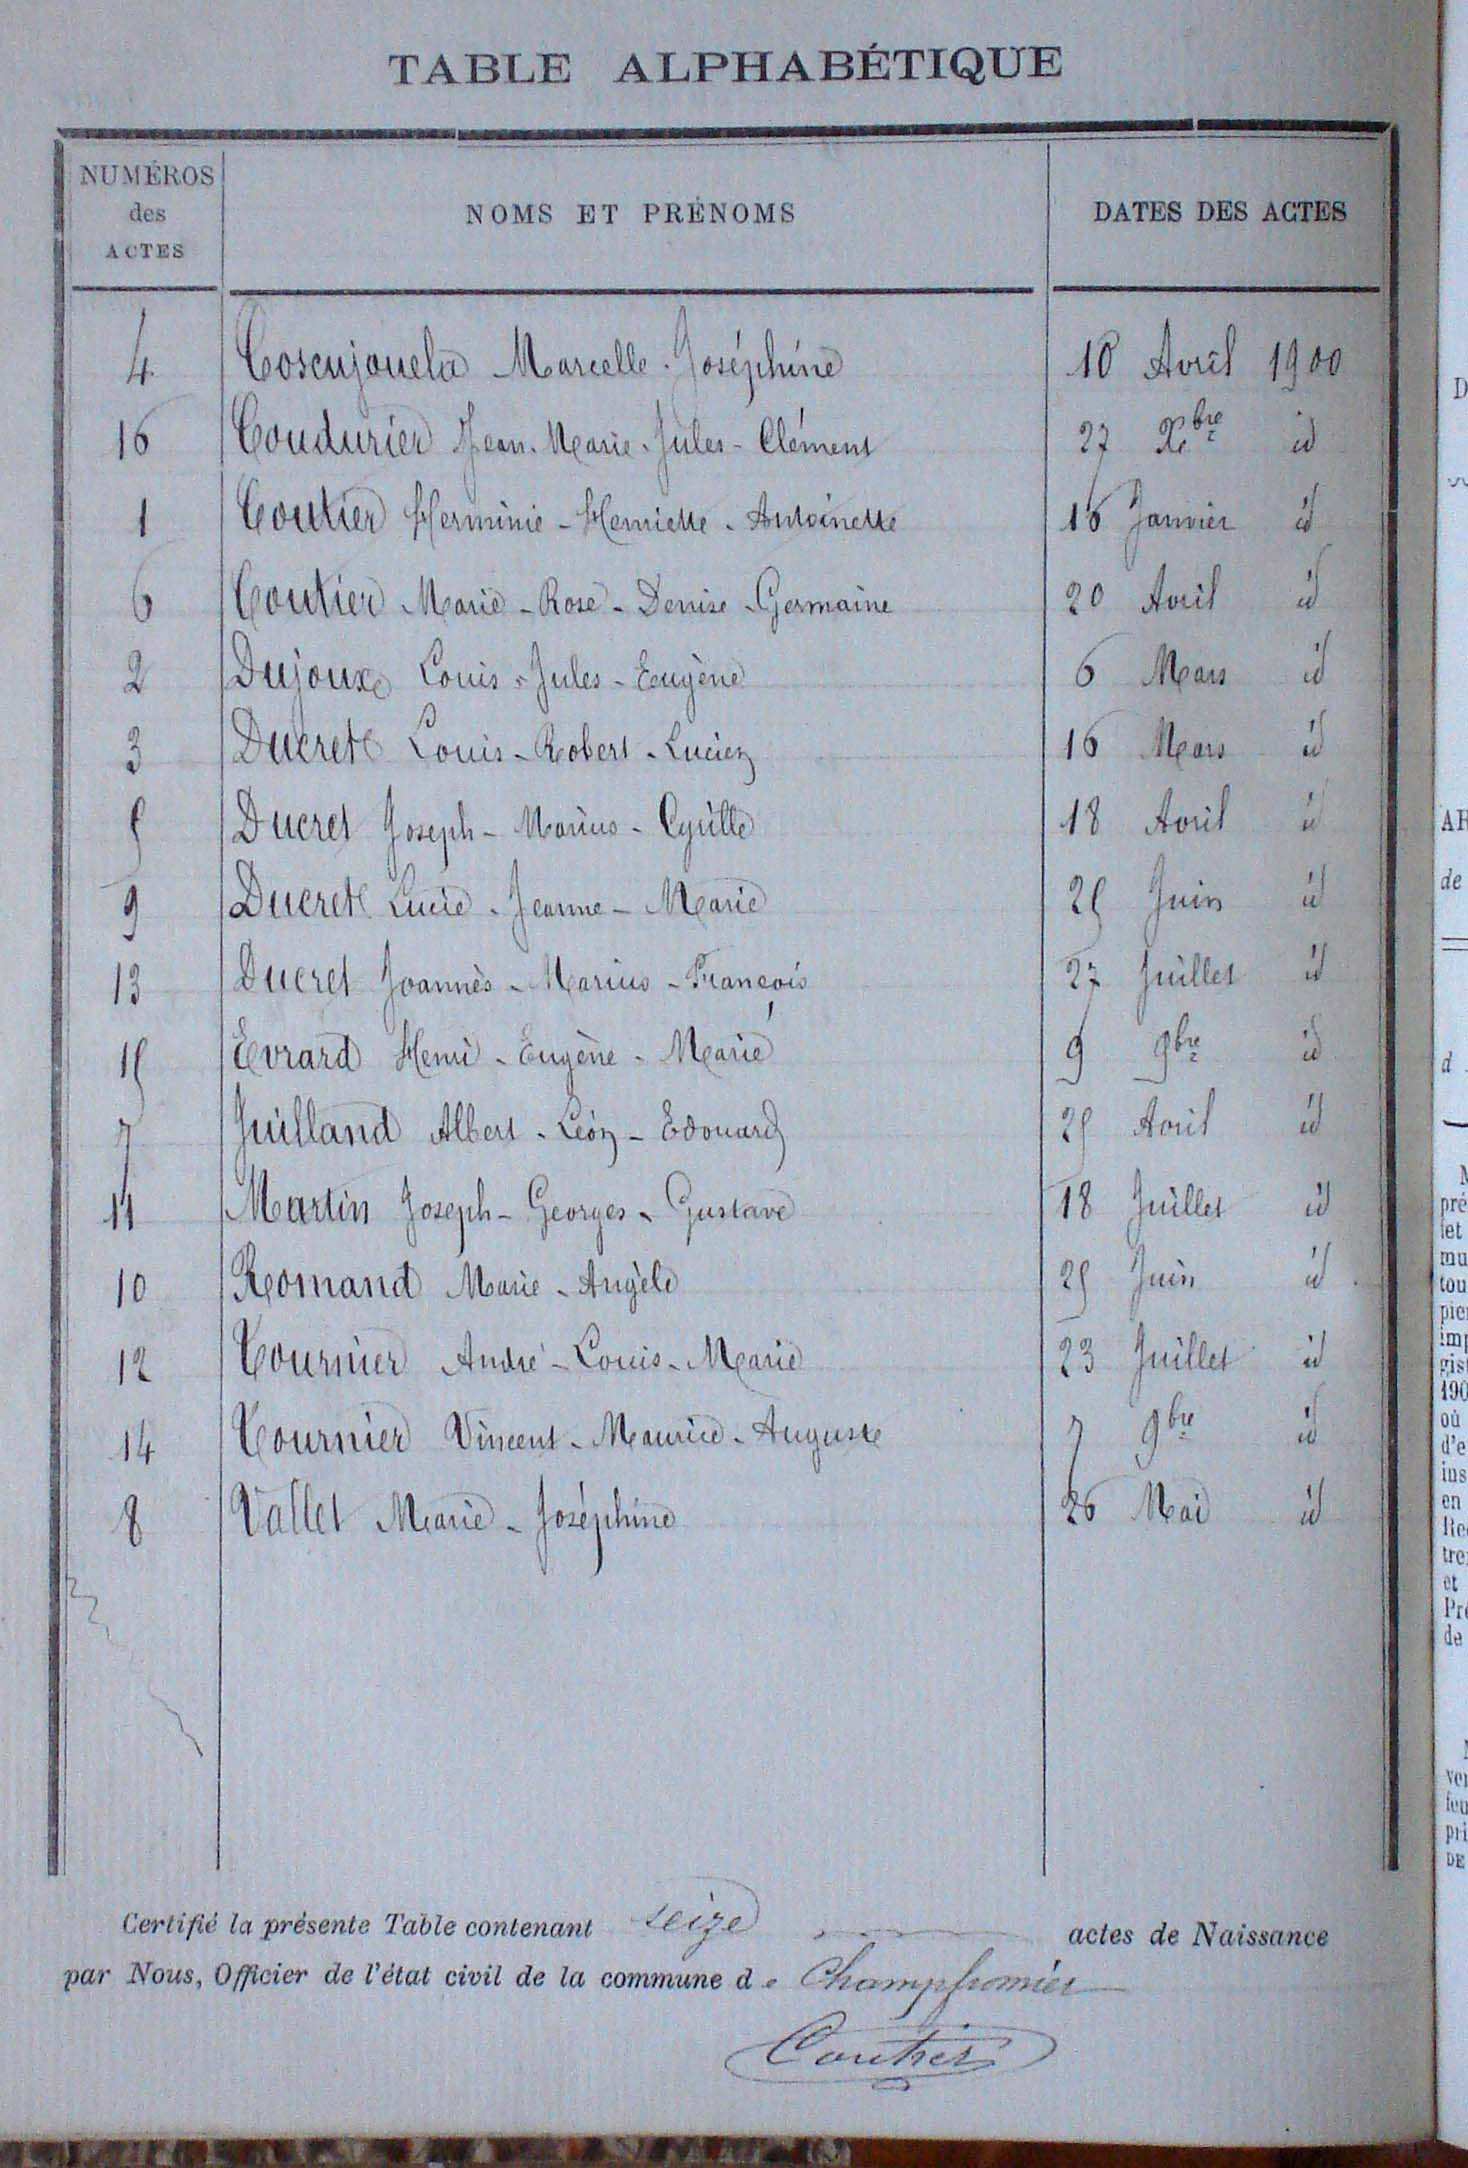 TABLE ALPHABÉTIQUE
NUMÉROS des ACTES NOMS ET PRÉNOMS DATES DES ACTES
4 Coscujouela Marcelle Joséphine 10 Avril 1900
16 Coudurier Jean-Marie-Jules-Clément 27 Xbre id
1 Coutier Herminie-Henriette-Antoinette 16 Janvier id
6 Coutier Marie-Rose-Denise-Germaine 20 Avril id
2 Dujoux Louis-Jules-Eugène 6 Mars id
3 Ducret Louis-Robert-Lucien 16 Mars id
5 Ducret Joseph-Marius-Cyrille 18 Avril id
9 Ducret Lucie-Jeanne-Marie 25 Juin id
13 Ducret Joannès-Marius-François 27 Juillet id
15 Evrard Henri-Eugène-Marie 9 9bre id
7 Juilland Albert-Léon-Edouard 25 Avril id
11 Martin Joseph-Georges-Gustave 18 Juillet id
10 Romand Marie-Angèle 25 Juin id
12 Tournier André-Louis-Marie 23 Juillet id
14 Tournier Vincent-Maurice-Auguste 7 9bre id
8 Vallet Marie-Joséphine 26 Mai id
Certifié la présente Table contenant seize actes de Naissance
par Nous, Officier de l'état civil de la commune de Champfromier
Coutier